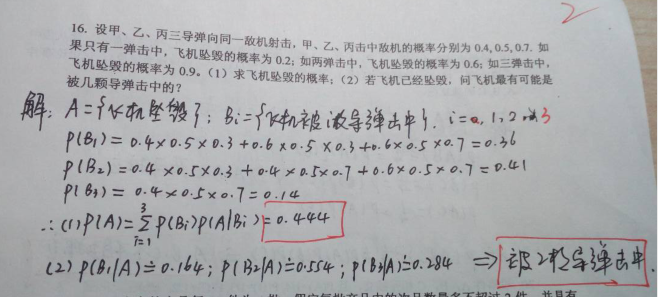 2
16. 设甲、乙、丙三导弹向同一敌机射击，甲、乙、丙击中敌机的概率分别为 0.4, 0.5, 0.7. 如
果只有一弹击中，飞机坠毁的概率为 0.2；如两弹击中，飞机坠毁的概率为 0.6；如三弹击中，
飞机坠毁的概率为 0.9。（1）求飞机坠毁的概率；（2）若飞机已经坠毁，问飞机最有可能是
被几颗导弹击中的？
解: A={飞机坠毁}; Bi={飞机被i枚导弹击中}. i=0, 1, 2, 3
P(B₁) = 0.4×0.5×0.3+0.6×0.5×0.3+0.6×0.5×0.7=0.36
P(B₂)=0.4×0.5×0.3+0.4×0.5×0.7+0.6×0.5×0.7=0.41
P(B₃)=0.4×0.5×0.7=0.14
∴(1)P(A)=∑³ᵢ₌₁P(Bi)P(A|Bi)=0.444
(2) P(B₁|A)≐0.164; P(B₂|A)≐0.554; P(B₃|A)≐0.284 ⇒ 被2枚导弹击中.